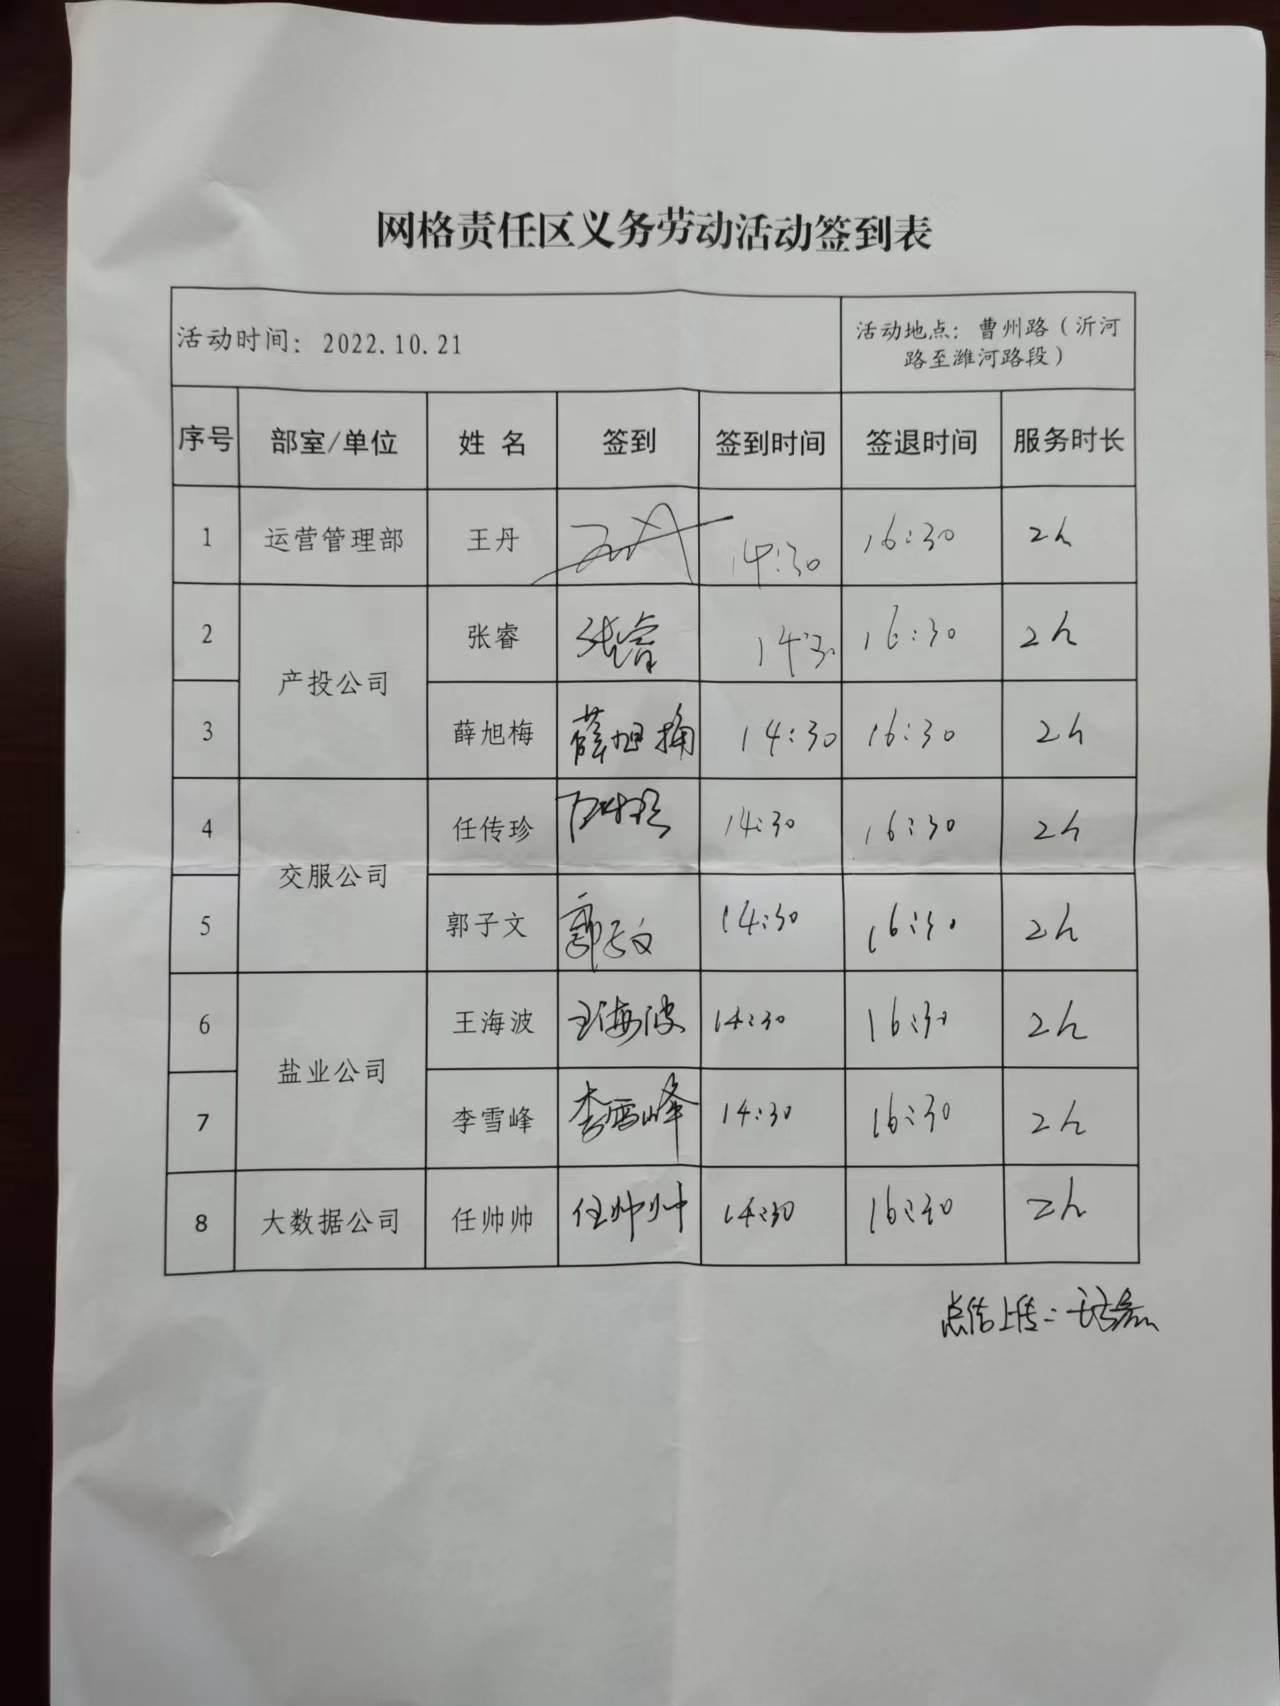 网格责任区义务劳动活动签到表
活动时间：2022.10.21
活动地点：曹州路（沂河
路至潍河路段）
序号 部室/单位 姓 名 签到 签到时间 签退时间 服务时长
1 运营管理部 王丹 王丹 14:30 16:30 2h
2 产投公司 张睿 张睿 14:30 16:30 2h
3 薛旭梅 薛旭梅 14:30 16:30 2h
4 交服公司 任传珍 14:30 16:30 2h
5 郭子文 郭子文 14:30 16:30 2h
6 盐业公司 王海波 王海波 14:30 16:30 2h
7 李雪峰 李雪峰 14:30 16:30 2h
8 大数据公司 任帅帅 任帅帅 14:30 16:30 2h
上传：